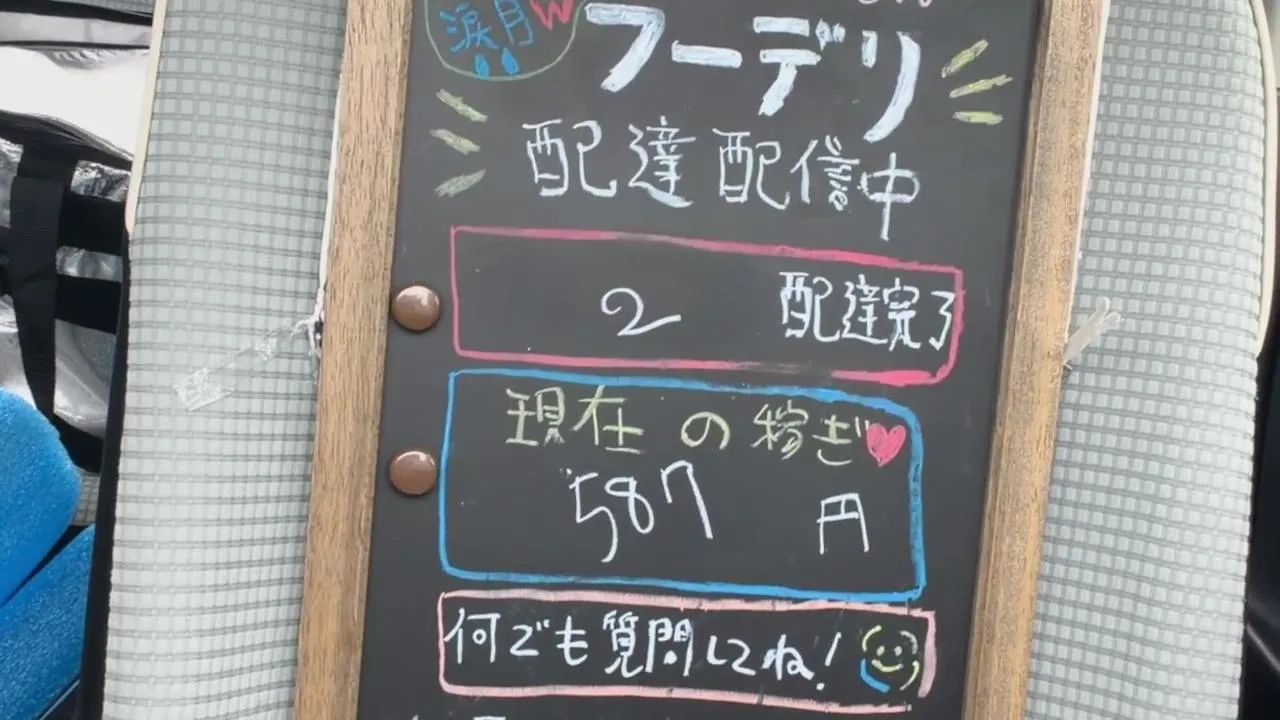 涙月W
フーデリ
配達配信中
2 配達完了
現在の稼ぎ
587円
何でも質問してね!